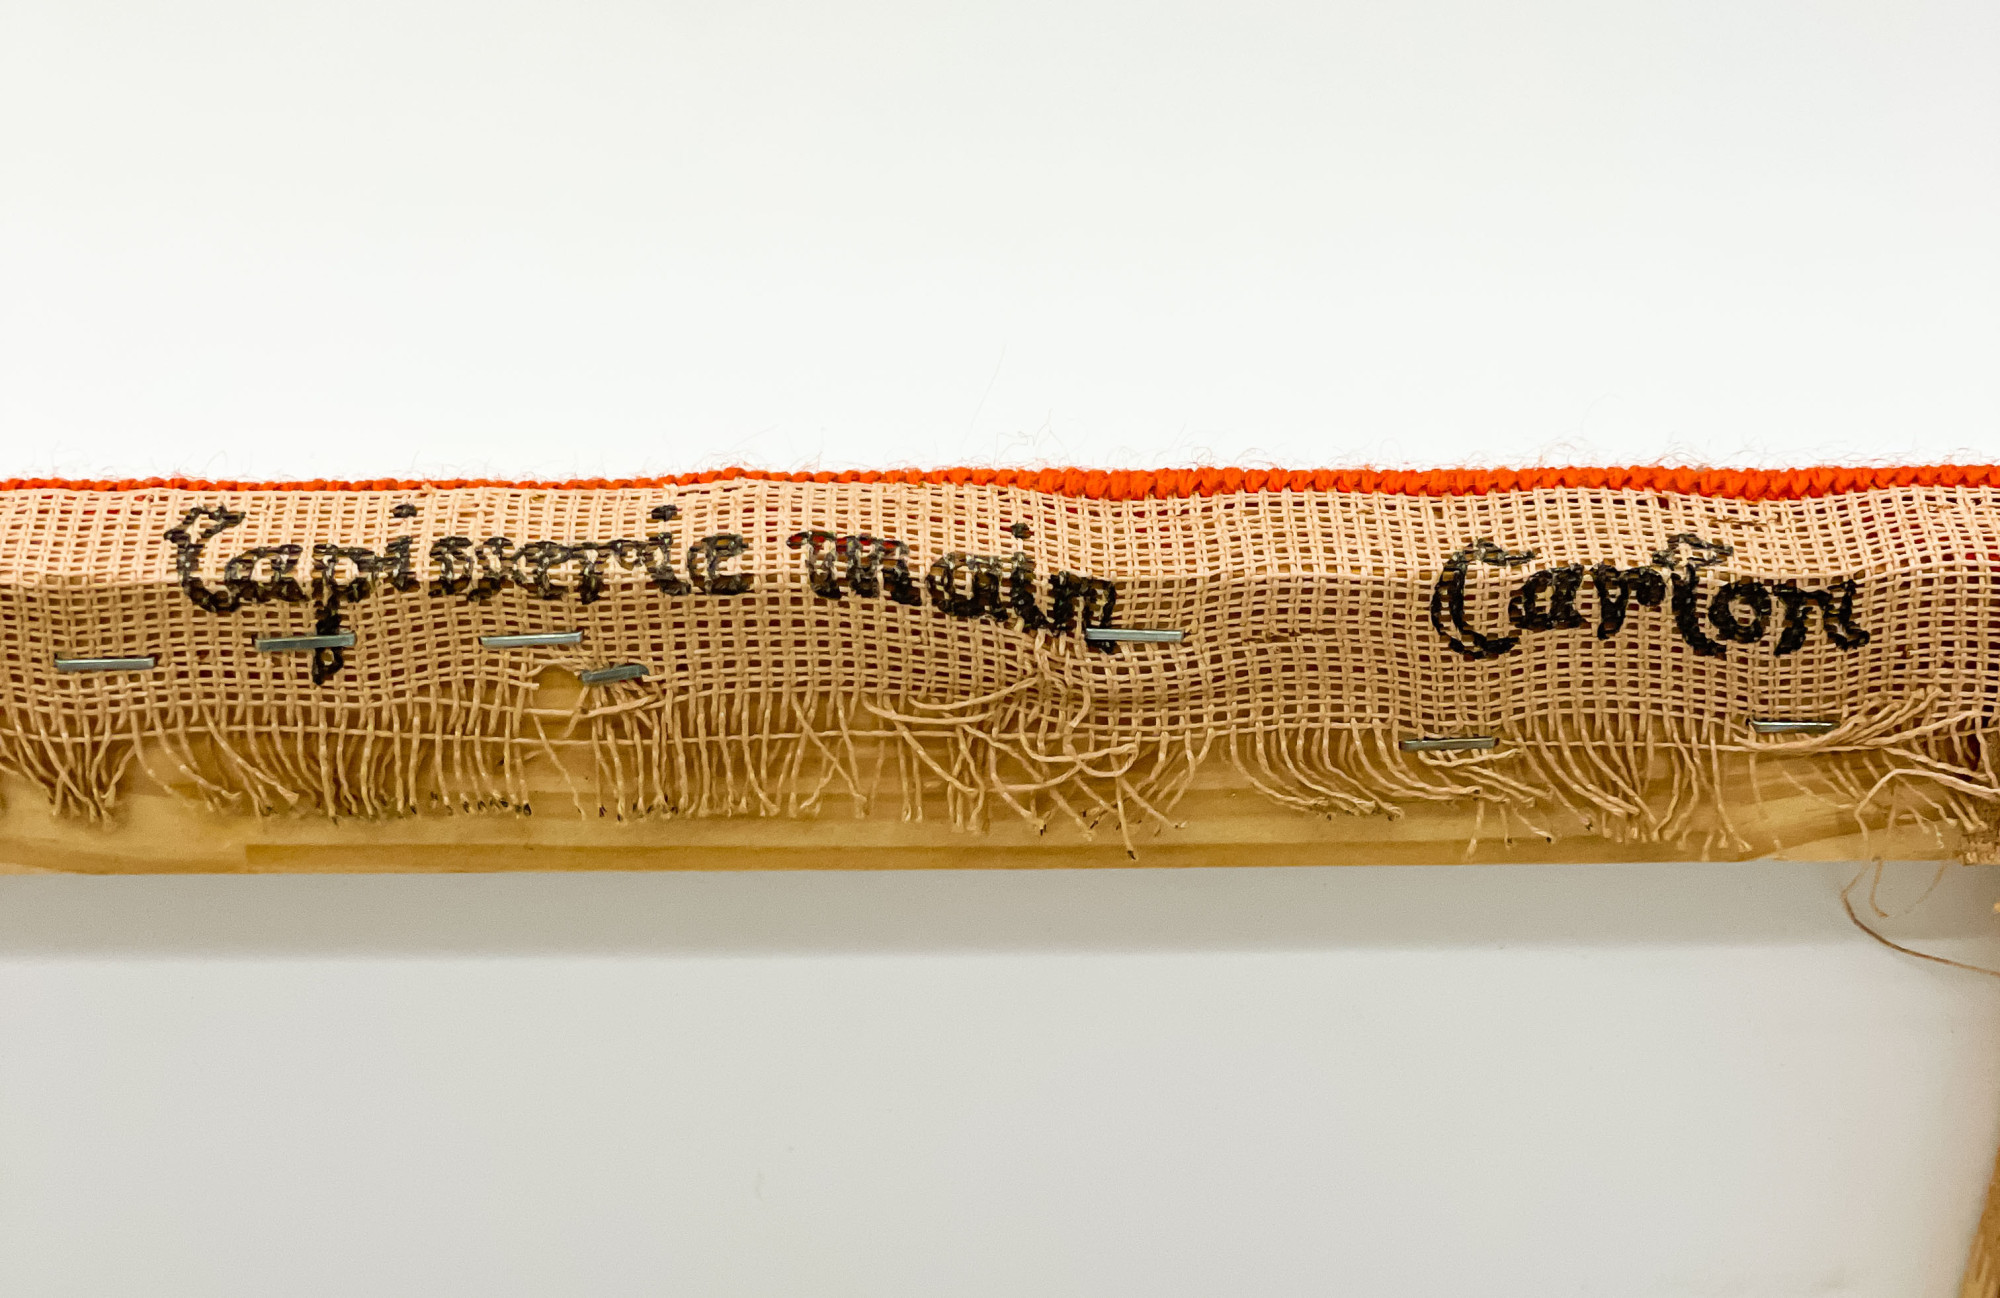 Tapisserie Main Carton